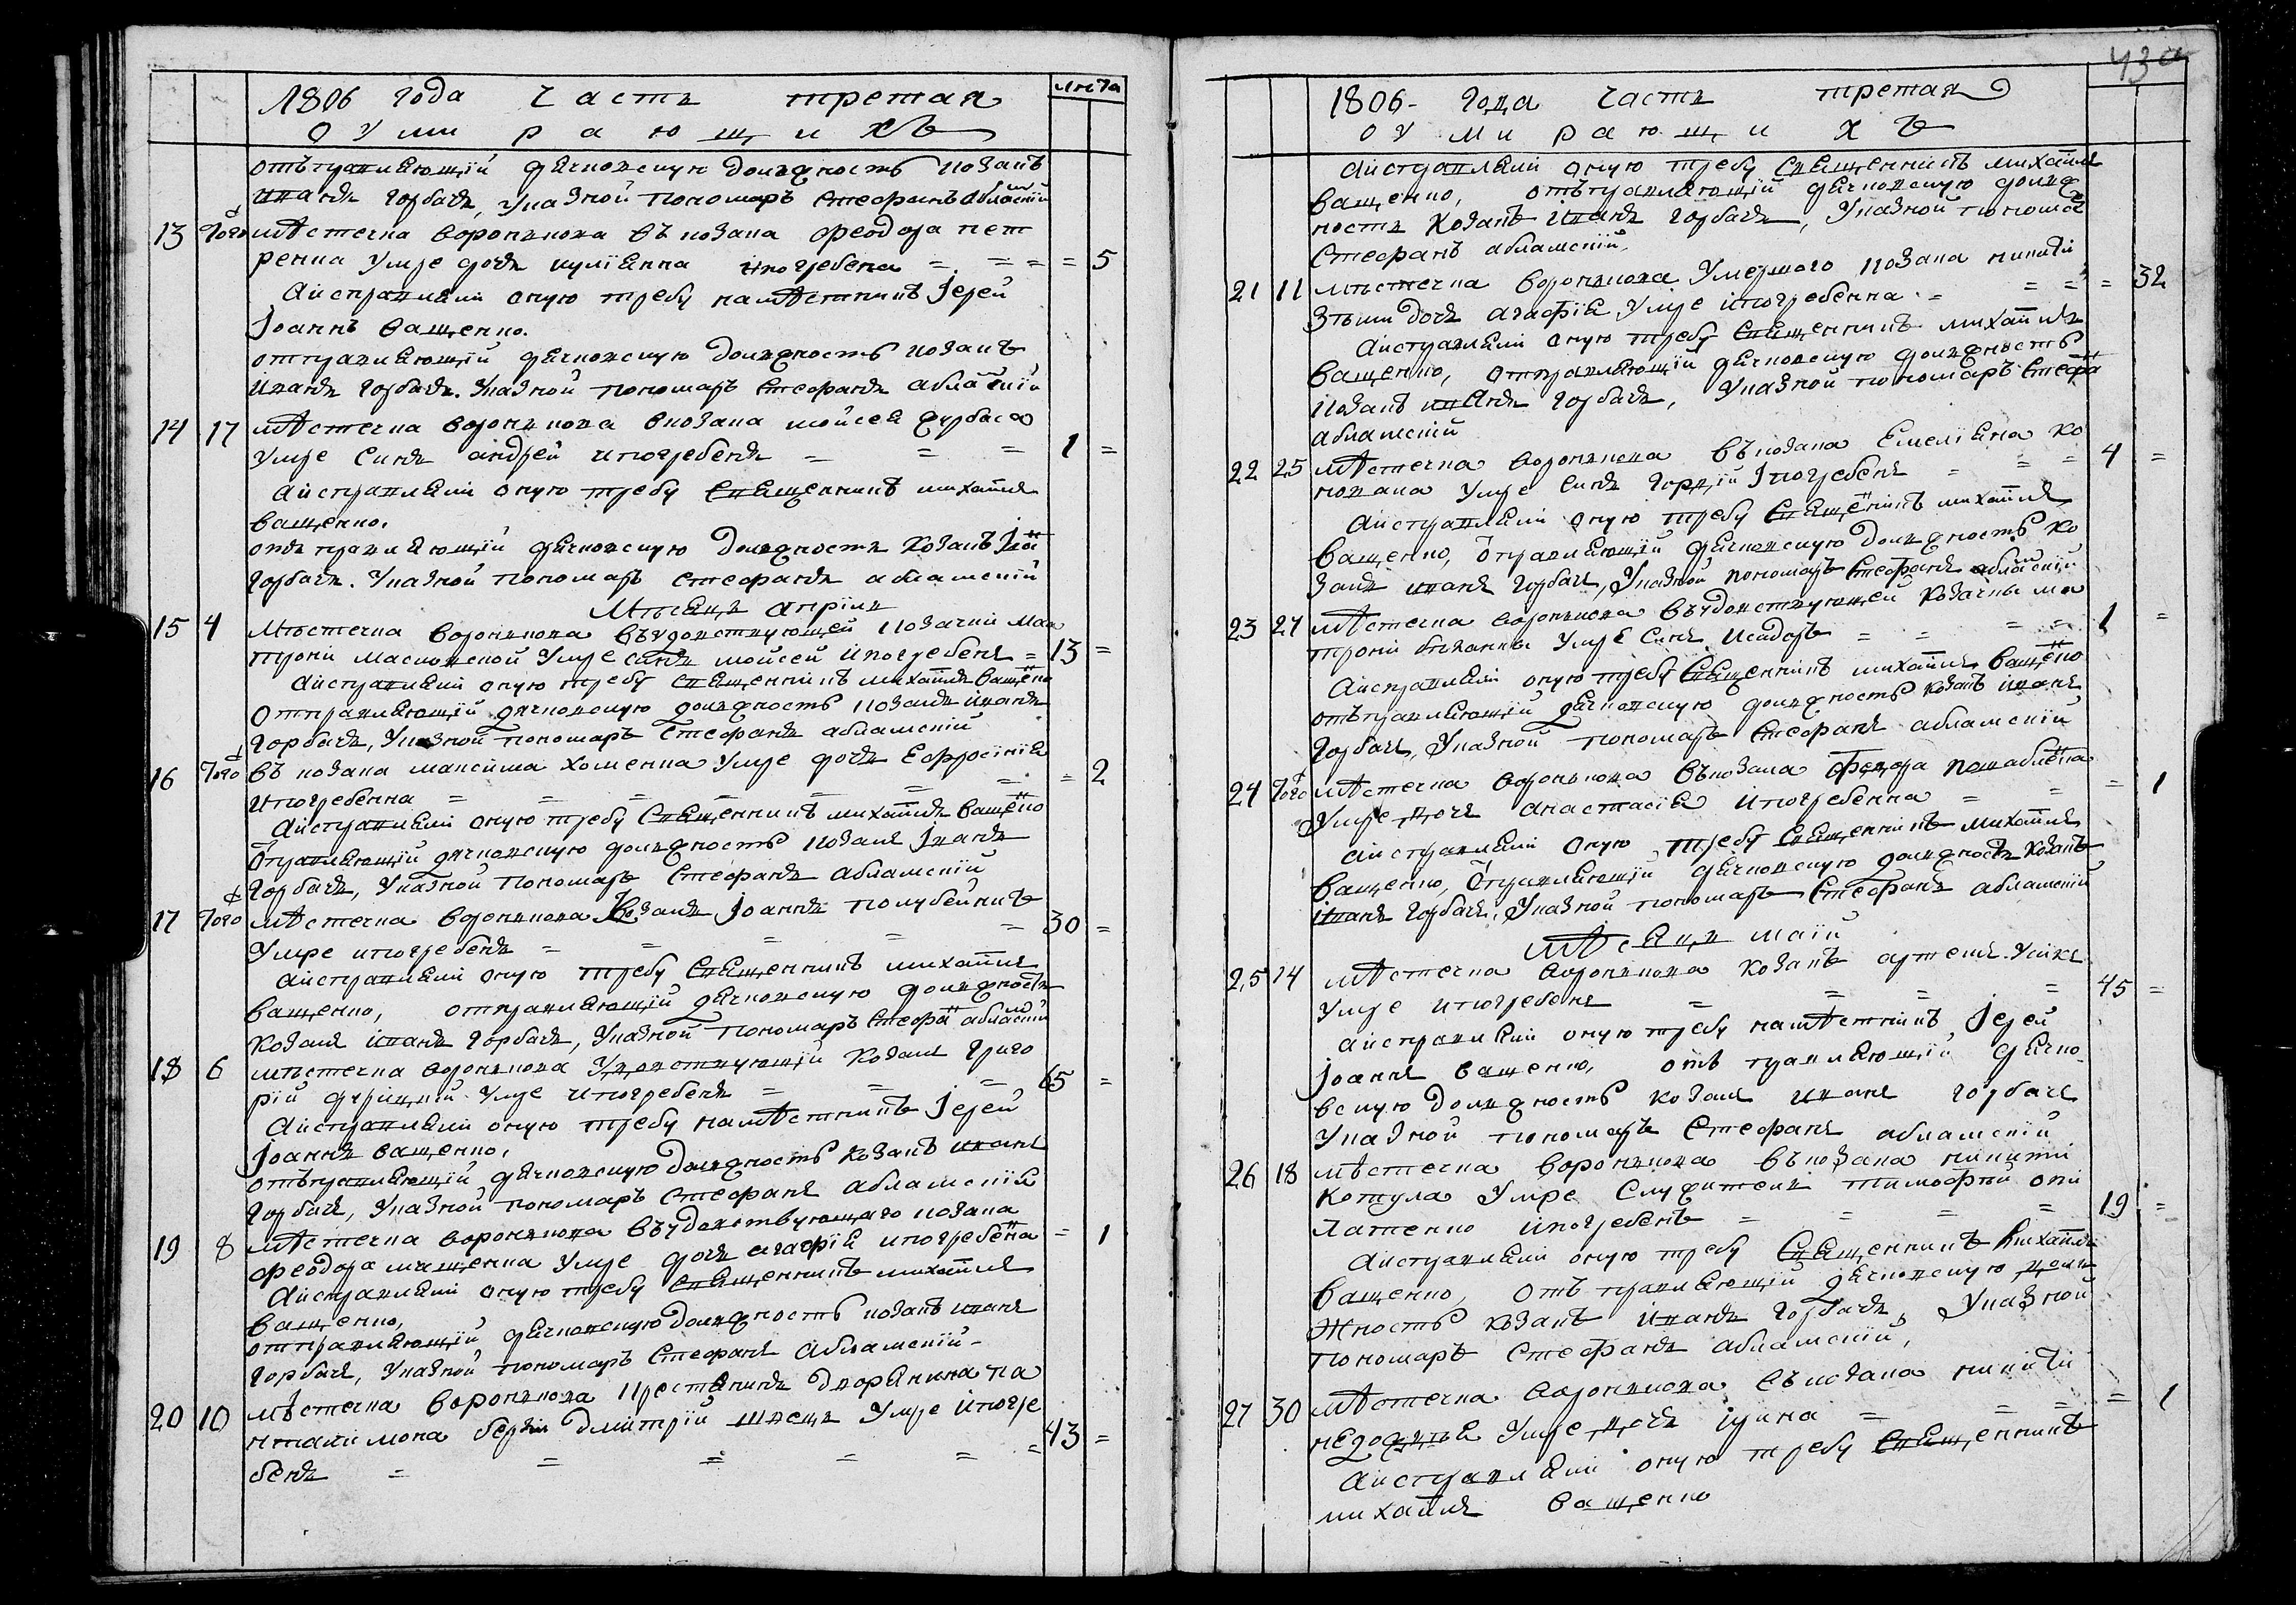 1806 года Часть третая
лѣта
о умирающихъ
отъправляющій дячковскую должность козакъ
иванъ горбачъ, указной пономаръ Стефанъ абламскій
13 Того мѣстечка воронкова въ козака феодора пет
ренка умре дочъ иулїанна ипогребена = = = = 5
Аисправляли оную требу намѣстникъ Іерей
Іоаннъ ващенко.
отправляющій дячковскую должность козакъ
иванъ горбачъ. Указной пономаръ Стефанъ аблаский
14 17 мѣстечка воронкова вкозака мойсея
умре синъ андрей ипогребенъ = = = 1 =
Аисправляли оную требу священникъ михаилъ
ващенко.
отъправляющій дячковскую должность козакъ Іва
горбачъ. Указной пономаръ стефанъ абламский
Мѣсяца априля
15 4 Мѣстечка воронкова въ удовствующей козачки Ма
трони масловской умре синъ мойсей ипогребенъ = 13 =
Аисправляли оную требу священникъ михаилъ ващенко
Отправляющій дячковскую должность козакъ иванъ
горбачъ, Указной пономаръ Стефанъ абламский
16 Того въ козака максима хоменка умре дочъ Ефросинїя
ипогребенна = = = = = = = 2
Аисправляли оную требу священникъ михаилъ ващенко
отправляющій дячковскую должность козакъ Іванъ
горбачъ, Указной пономаръ Стефанъ абламский
17 Того мѣстечка воронкова козакъ Іоаннъ полубейникъ
Умре ипогребенъ = = = = = 30 =
Аисправляли оную требу священникъ михаилъ
ващенко, отправляющій дячковскую должность
козакъ иванъ горбачъ, Указной пономаръ Стефа аблаский
18 6 мѣстечка воронкова удовствующій козакъ григо
рій умре ипогребенъ = = = 65 =
Аисправляли оную требу намѣстникъ Іерей
Іоаннъ ващенко,
отъправляющій дячковскую должность козакъ иванъ
горбачъ, Указной пономаръ Стефанъ абламскій
19 8 мѣстечка воронкова въ удовствующаго козака
феодора мащенка умре дочъ агафїя ипогребена = 1
Аисправляли оную требу священникъ михаилъ
ващенко,
отправляющій дячковскую должность козакъ иванъ
горбачъ, Указной пономаръ Стефанъ абламскій
20 10 мѣстечка воронкова крестянинъ дворянина па
нталимона димитрій швецъ умре ипогре
бенъ = = = = = = 43 =
43а
1806- года часть третая
о умирающихъ
Аисправляли оную требу священникъ михаилъ
ващенко, отъправляющій дячковскую долж
ность козакъ иванъ горбачъ, Указной пономар
Стефанъ абламскій.
21 11 мѣстечка воронкова умершого козака никити
дочъ агафїя умре ипогребенна = = = = 32
Аисправляли оную требу священникъ михаилъ
ващенко, отправляющій дячковскую должность
козакъ иванъ горбачъ, Указной пономаръ Стефа
абламскій
22 25 мѣстечка воронкова въ козака Емелїяна ко
новала умре синъ гордїй Іпогребенъ = = = 4 =
Аисправляли оную требу священикъ михаилъ
ващенко, отправляющій дячковскую должность ко
закъ иванъ горбачъ, Указной пономаръ Стефанъ аблаский
23 27 мѣстечка воронкова въ удовствующей козачки ма
трони умре синъ Исидоръ = = = = 1 =
Аисправляли оную требу священникъ михаилъ ващенко
отъправляющій дячковскую должность козакъ иванъ
горбачъ, Указной пономаръ Стефанъ абламскій
24 Того мѣстечка воронкова въ козака федора
Умре дочъ анастасїя ипогребенна = = = 1
Аисправляли оную требу священникъ михаилъ
ващенко, отправляющій дячковскую должность козакъ
иванъ горбачъ, Указной пономаръ Стефанъ абламскій
Мѣсяца маїй
25 14 мѣстечка воронкова козакъ артемъ
умре ипогребенъ = = = = 45 =
Аисправляли оную требу намѣстникъ Іерей
Іоаннъ ващенко, отъ правляющій дячко
вскую должность козакъ иванъ горбачъ
Указной пономаръ Стефанъ абламскій
26 18 мѣстечка воронкова въ козака никити
котула умре служитель тимофѣй
ипогребенъ = = = = 19 =
Аисправляли оную требу священникъ михаилъ
ващенко, отъ правляющій дячковскую дол
жность козакъ иванъ горбачъ, Указной
пономаръ Стефанъ абламскій,
27 30 мѣстечка воронкова въ козака никити
умре дочъ ірина = = = = 1
Аисправляли оную требу священникъ
михаилъ ващенко